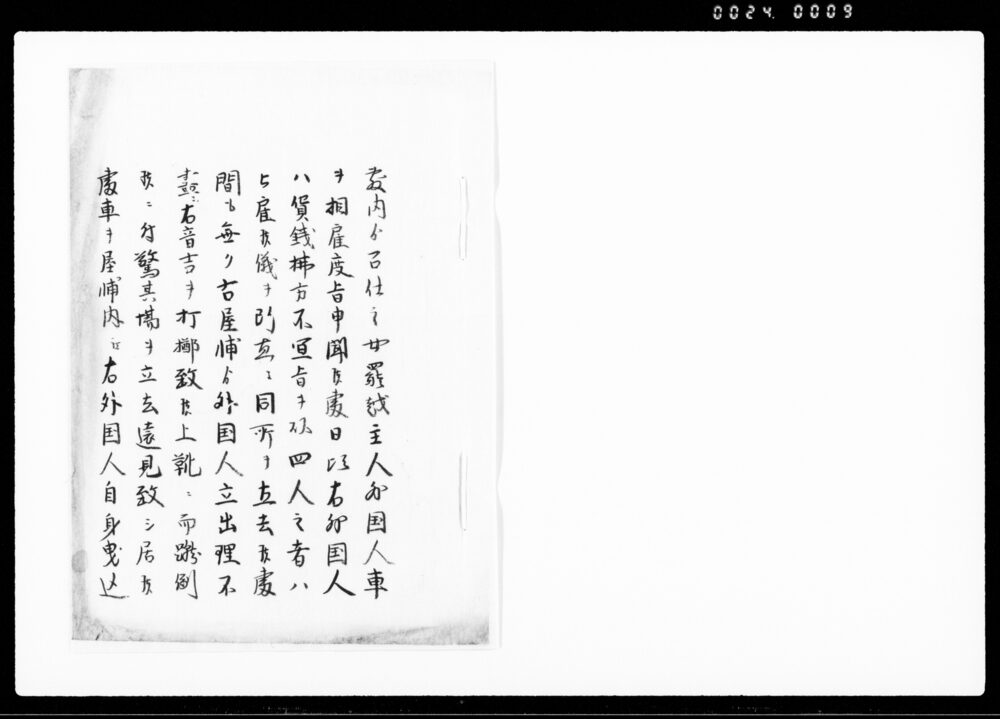 0024 0009
敷内ゟ召仕之女罷越主人外国人車
ヲ相雇度旨申聞候處日比右外国人
ハ賃銭拂方不宜旨ヲ以四人之者ハ
雇候儀ヲ断直ニ同所ヲ立去候處
間も無ク右屋鋪ゟ外国人立出理不
盡ニ右音吉ヲ打擲致候上靴ニ而蹴倒
候ニ付驚其場ヲ立去遠見致シ居候
處車ヲ屋鋪内江右外国人自身曳込